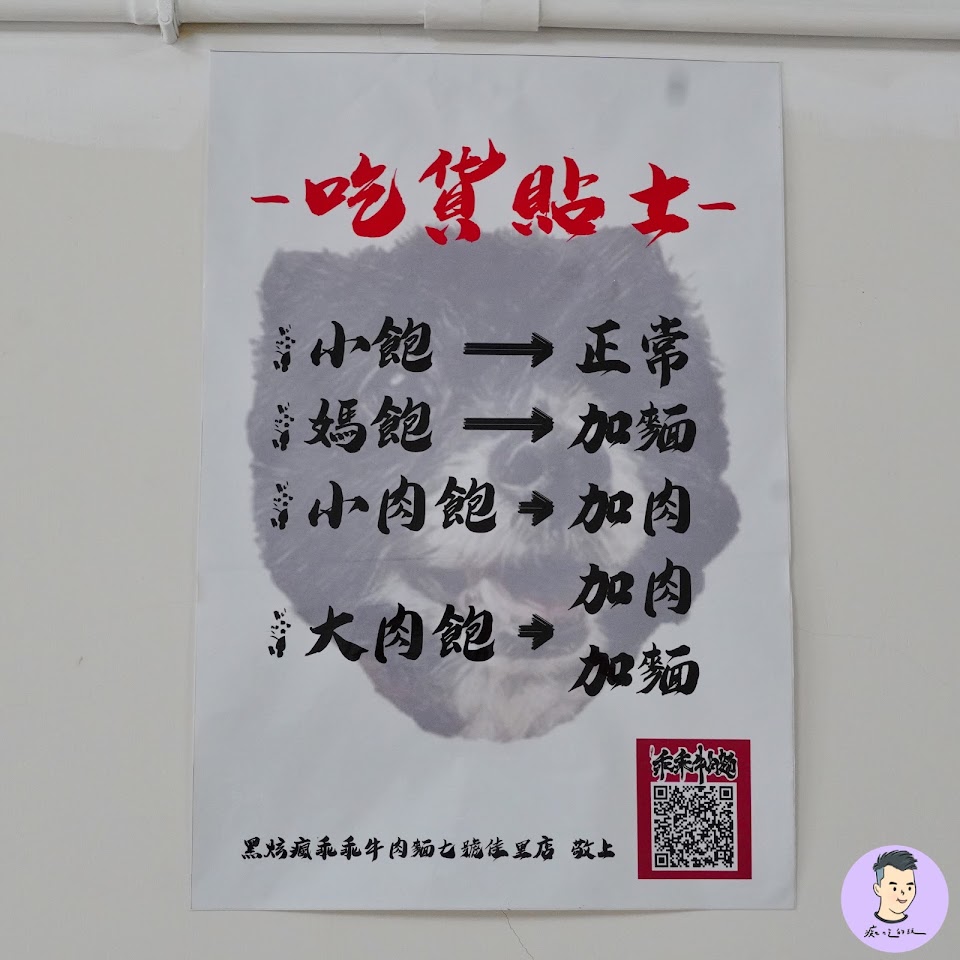 -吃貨貼士-
小飽 → 正常
媽飽 → 加麵
小肉飽 → 加肉
大肉飽 → 加肉
加麵
乖乖牛肉麵
黑炫瘋乖乖牛肉麵七號佳里店 敬上
癡吃的玩